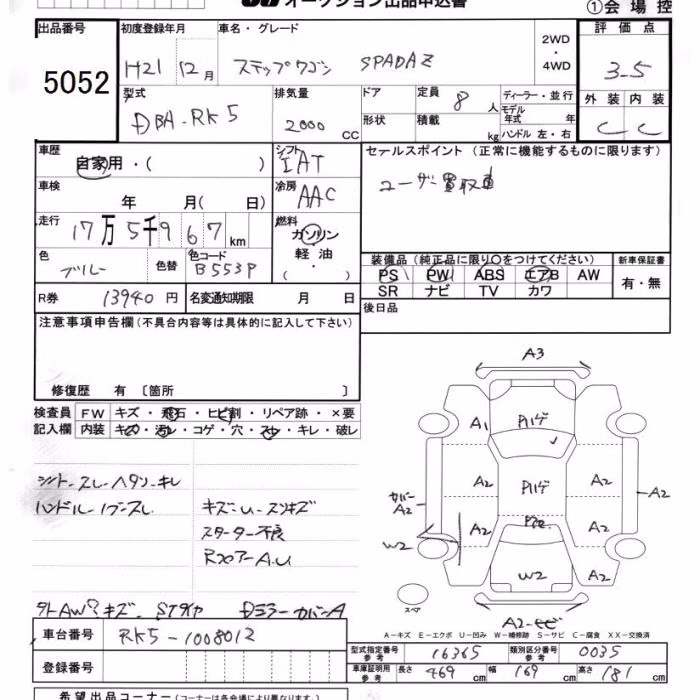 オークション出品申込書
①会場控
出品番号 初度登録年月 車名・グレード 2WD・4WD 評価点
5052
H21 12月 ステップワゴン SPADA Z 3-5
型式 排気量 ドア 定員 8人 ディーラー・並行 外装 内装
DBA-RK5 2000cc 形状 積載 kg モデル年式 年 C C
ハンドル 左・右
車歴 自家用・( ) シフト IAT セールスポイント (正常に機能するものに限ります)
車検 年 月( 日) 冷房 AAC ユーザー買取車
走行 17万5千967km 燃料 ガソリン・軽油・( )
色 ブルー 色替 色コード B553P
装備品 (純正品に限り〇をつけてください) 新車保証書
PS PW ABS エアB AW 有・無
SR ナビ TV カワ
R券 13940円 名変通知期限 月 日 後日品
注意事項申告欄(不具合内容等は具体的に記入して下さい)
修復歴 有〔箇所 〕
検査員記入欄 FW キズ・飛石・ヒビ割・リペア跡・×要
内装 キズ・汚レ・コゲ・穴・スレ・キレ・破レ
シート-スレ-ヘタリ-キレ
ハンドル-ノブ-スレ キズ-U-スリキズ
スターター不良
RドアーA.U
キズ STタイヤ DミラーカバーA
A3
A1
A2 A2
A2 A2
カバーA2 A2
W2
W2 A2
スペア
A2
A-キズ E-エクボ U-凹み W-補修跡 S-サビ C-腐食 XX-交換済
車台番号 RK5-1008012
登録番号
型式指定番号 参考 16365 類別区分番号 参考 0035
車庫証明用 参考 長さ 469cm 幅 169cm 高さ 181cm
希望出品コーナー(コーナーは各会場により異なります。)